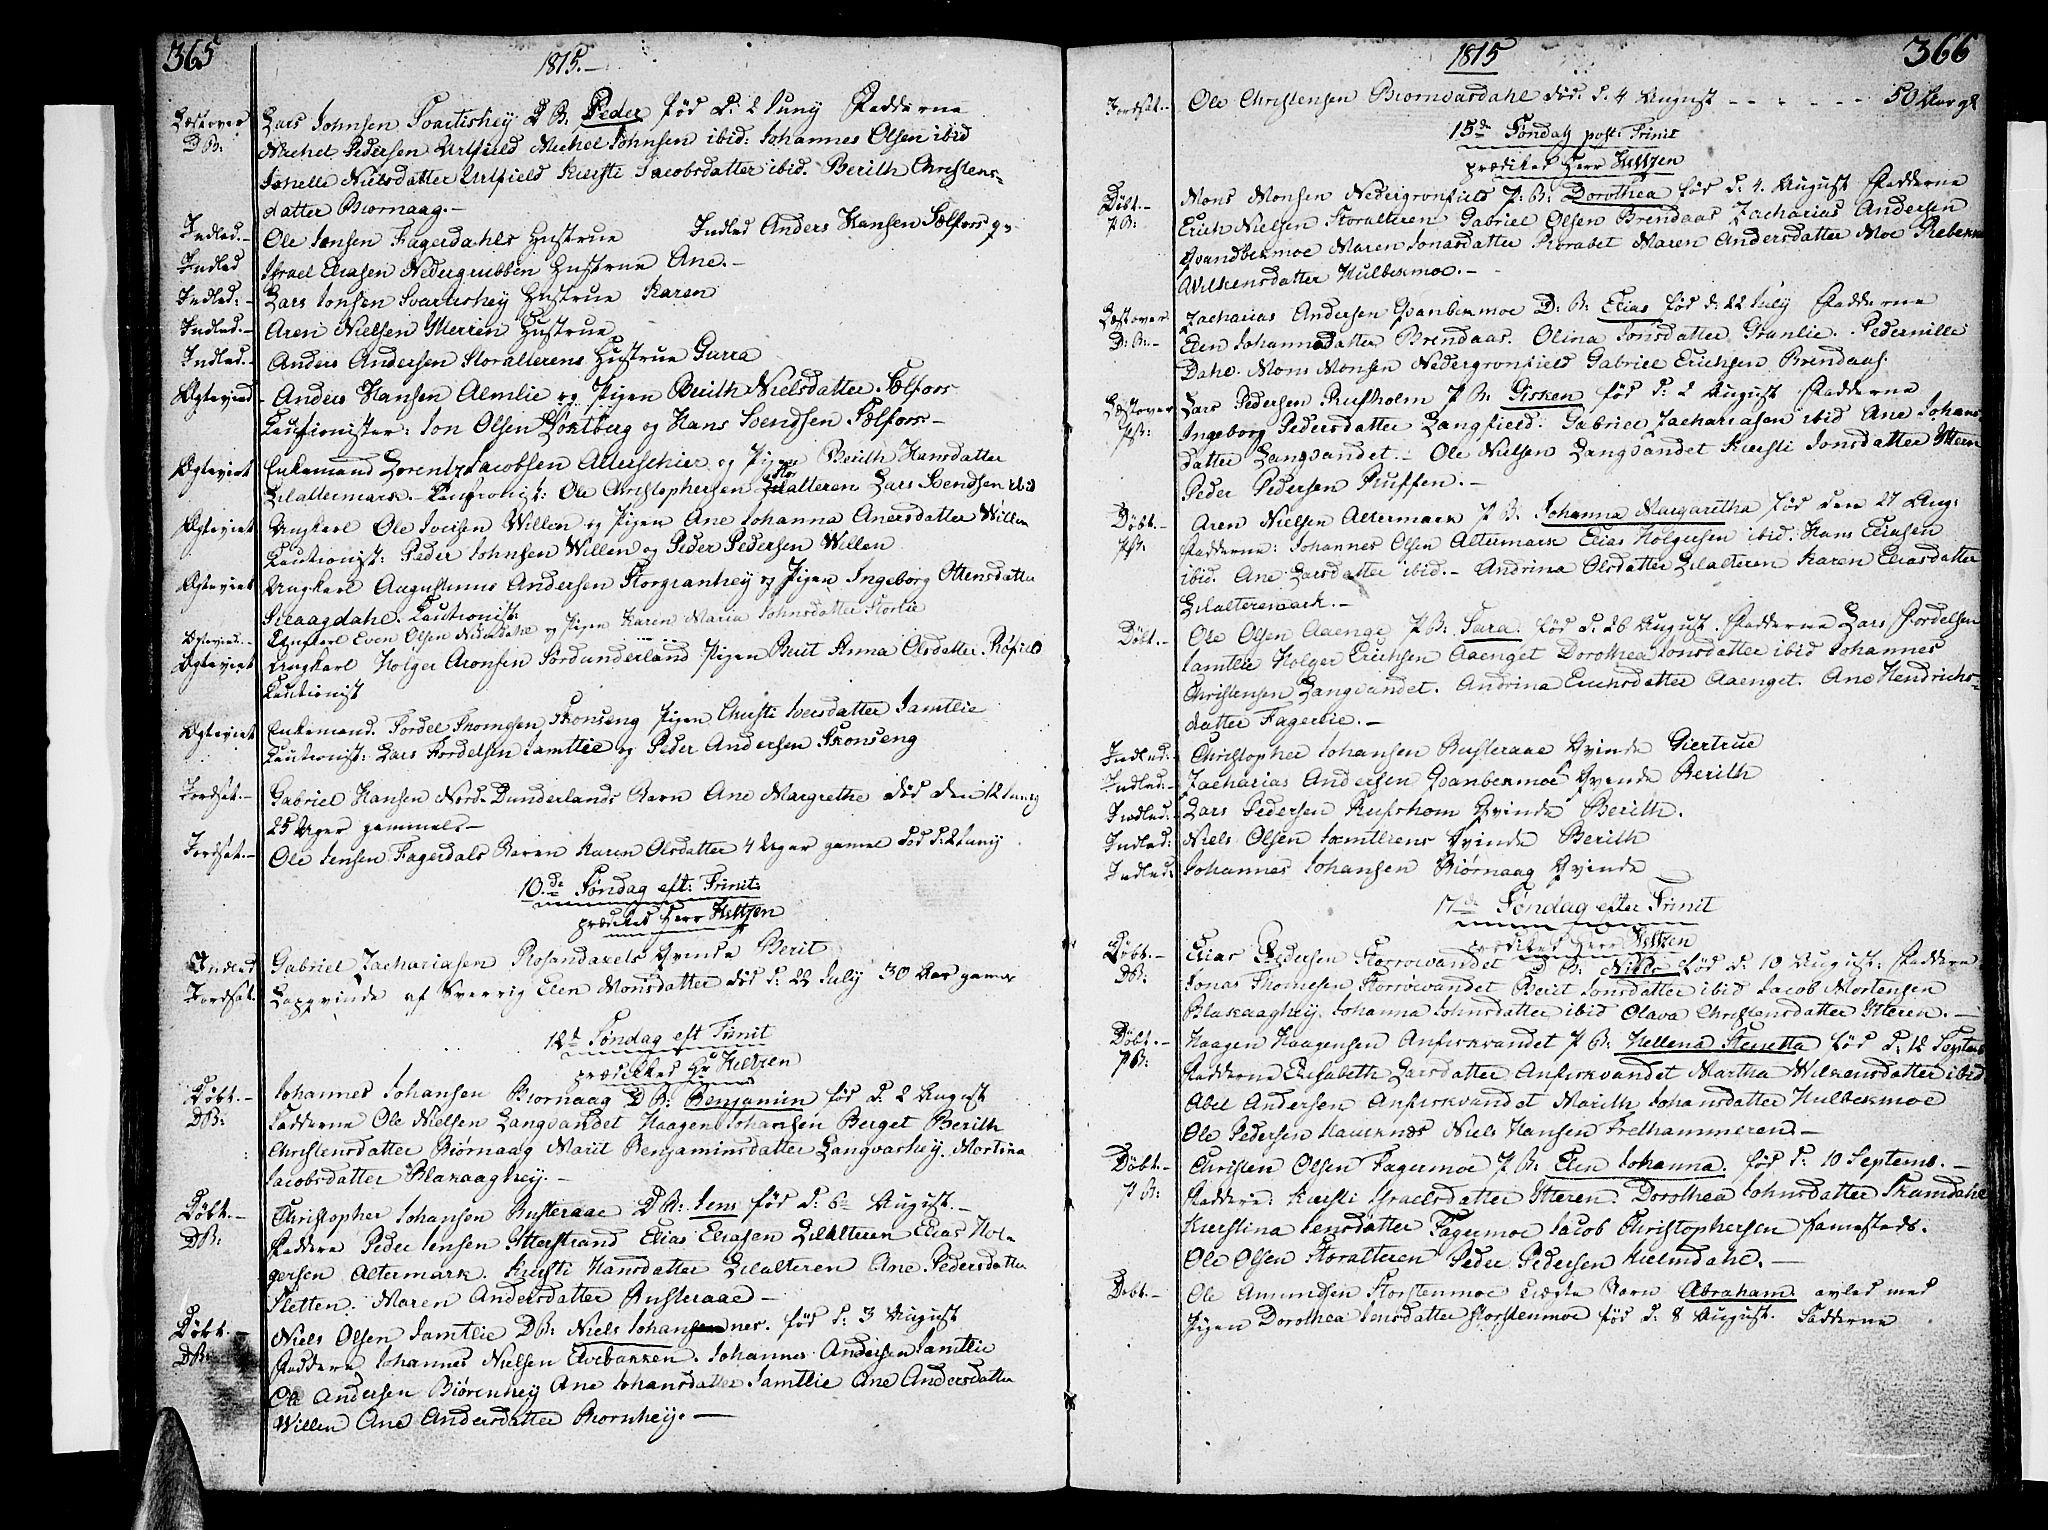 365
1815.-
Læstover Lars Johnsen Svartishey D B: Peder fød d: 2 Juny Fadderne
D B: Michel Pedersen Urlfield Michel Johnsen ibid: Johannes Olsen ibid
Nielsdatter Urlfield Kiersti Jacobsdatter ibid. Berith Christens-
datter Biornaag.-
Indled.- Ole Jensen Fagerdahls Hustrue Indled Anders Hansen Sølfors
Indled Israel Eliasen Nedergrubben Hustrue Ane.-
Indled:- Lars Jonsen Svartishey Hustrue Karen
Indled.- Aren Nielsen Ytteren Hustrue
Indled.- Anders Andersen Storalterens Hustrue Gurra
Ægteviet Anders Hansen Almlie og Pigen Berith Nielsdatter Sølfors
Cautionister: Jon Olsen Løktberg og Hans Svendsen Sølfors-
Ægteviet Enkemand Lorentz Jacobsen Alterschier og Pigen Berith Hansdatter
Lilaltermark.- Cautionist: Ole Christophersen Storalteren Lars Svendsen ibid
Ægteviet Ungkarl Ole Iversen Willen og Pigen Ane Johanna Anersdatter Willen
Cautionist: Peder Johnsen Willen og Peder Pedersen Willen
Ægteviet Ungkarl Augustinus Andersen Storgranhey og Pigen Ingeborg Ottensdatter
Cautionist:
Ægteviet. Ungkarl Even Olsen og Pigen Karen Maria Johnsdatter Storlie
Ægteviet Ungkarl Holger Aronsen Sørdunderland Pigen Berit Anna Olsdatter. Røfield
Cautionist
Ægteviet Enkemand. Tordel Thomesen Skonseng Pigen Chirsti Iversdatter Jamtlie
Cautionist: Lars Tordelsen Jamtlie og Peder Andersen Skonseng
Jordfæt.- Gabriel Hansen Nord-Dunderlands Barn Ane Margrethe død den 12 Juny
25 Uger gammel.-
Jordfæt.- Ole Jensen Fagerdals Baren Karen Olsdatter 4 Uger gamel død d: 2 Juny
10.de Søndag eft: Trinit:
prædiked Herr Heltzen
Indled Gabriel Zachariasen Røsandaxels Qvinde Berit
Jordsat. Lapqvinde af Sverrig Elen Monsdatter død d: 22 July 30 Aar gamel
12d Søndag eft Trinit
prædiked Hr Heltzen
Døbt.- Johannes Johansen Biornaag D B: Benjamin fød d: 2 August
DB: Fadderne Ole Nielsen Langvandet Haagen Johansen Berget Berith
Christensdatter Biørnaag Marit Benjaminsdatter Langvashey. Martina
Jacobsdatter Blakaaghey.-
Døbt.- Christopher Johansen Busteraae D B: Jens fød d: 6 August.-
DB: Faddere Peder Jensen Ytterstrand Elias Eliasen Lilalteren Elias Hol-
gersen Altermark. Kiersti Hansdatter Lilalteren Ane. Pedersdatter
Sletten. Maren Andersdatter Busteraae-
Døbt.- Niels Olsen Jamtlie DB: Niels Johannes. fød d: 3 August
DB: Faddere Johannes Nielsen Elvebakken. Johannes Andersen Jamtlie
Ole Andersen Biørenhey Ane Johansdatter Jamtlie Ane Andersdatter
Willen Ane Andersdatter Biornhey.-
366
1815
Jordsat.- Ole Christensen Biornvasdahl død. d. 4 August - - - 50 Aar gl
15de Søndag post: Trinit
prædiked Herr Heltzen
Døbt.- Mons Monsen Nedergronfield P: B: Dorothea fød d: 4. August Fadderne
PB: Erich Nielsen Storalteren Gabriel Olsen Brendaas Zacharias Andersen
Qvandbekmoe Maren Jonasdatter Maren Andersdatter Moe Rebekka
Wilkensdatter Hulbekmoe.-
Læstover Zacharias Andersen Qvanbekmoe D: B: Elias fød d: 22 July Fadderne
D: B:- Elen Johannsdatter Brendaas. Olina Jonsdatter Granlie. Pedernille
Dahl. Mons Monsen Nedergronfield Gabriel Erichsen Brendaas.
Læstover Lars Pedersen Rusholm P B: Gisken fød d: 2 August Fadderne
PB: Ingeborg Pedersdatter Langfield. Gabriel Zachariasen ibid Ane Johans
datter Langvandet.- Ole Nielsen Langvandet Kiersti Jonsdatter Ytteren
Peder Pedersen Ruffen.-
Døbt.- Aren Nielsen Altermark P B: Johanna Margaretha fød den 27 Aug:
PB: Fadderne: Johannes Olsen Altermark Elias Holgersen ibid. Hans Eliasen
ibid. Ane Larsdatter ibid.- Andrina Olsdatter Lilalteren Karen Eliasdatter
Lilaltermark.-
Døbt.- Ole Olsen Aaenge P B: Sara. fød d: 26 August. Fadderne Lars Tordelsen
Jamtlie Holger Erichsen Aaenget Dorothea Jonsdatter ibid Johannes
Christensen Langvandet. Andrina Erichsdatter Aaenget. Ane Hendrichs-
datter Fagerlie.-
Indled:- Christopher Johansen Busteraae Qvinde Giertrue
Indled:- Zacharias Andersen Qvanbekmoe Qvinde Berith
Indled.- Lars Pedersen Rusholm Qvinde Berith.
Indled: Niels Olsen Jamtliens Qvinde Berith
Indled: Johannes Johansen Biørnaag Qvinde
17de Søndag efter Trinit
prædiked Herr Heltzen
Døbt.- Elias Pedersen Storrøvandet D B: Niels fød d: 10 August: Faddere
DB: Jonas Thomesen Storrøvandet Berit Jonsdatter ibid Jacob Mortensen
Blakaaghey. Johanna Johnsdatter ibid Olava Christensdatter Ytteren.-
Døbt.- Haagen Haagensen Anfirkvandet P B: Hellena fød d: 12 Septem
PB: Fadderne Elisabeth Larsdatter Anfirkvandet Martha Wilkensdatter ibid
Abel Andersen Anfirkvandet Marith Johansdatter Hulbekmoe
Ole Pedersen Hauknes Niels Hansen Trelhammeren.-
Døbt.- Christen Olsen Fagermoe P B: Elen Johanna. fød d: 10 Septemb.-
PB: Faddere: Kiersti Israelsdatter Ytteren. Dorothea Johnsdatter Skamdahl
Kierstina Jensdatter Fagermoe Jacob Christophersen samesteds.
Ole Olsen Storalteren Peder Pedersen Hielmdahl.-
Døbt.- Ole Amundsen Storstenmoe uægte Barn Abraham avled med
Pigen Dorothea Jonsdatter Storstenmoe fød d: 8 August. Fadderne